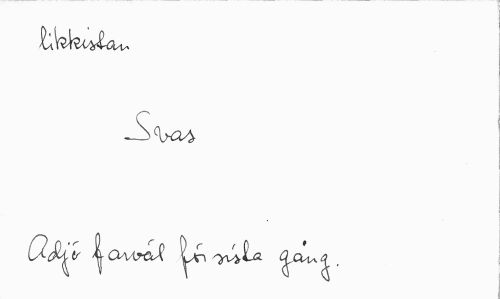 likkistan
Svas
Adjö farväl för sista gång.